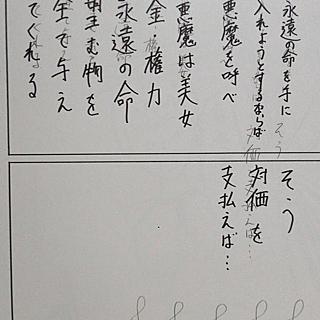 永遠の命を手に
入れようとするならば
悪魔を呼べ
悪魔は美女
金・権力
永遠の命
望む物を
全て与え
てくれる
そう
対価を
支払えば…